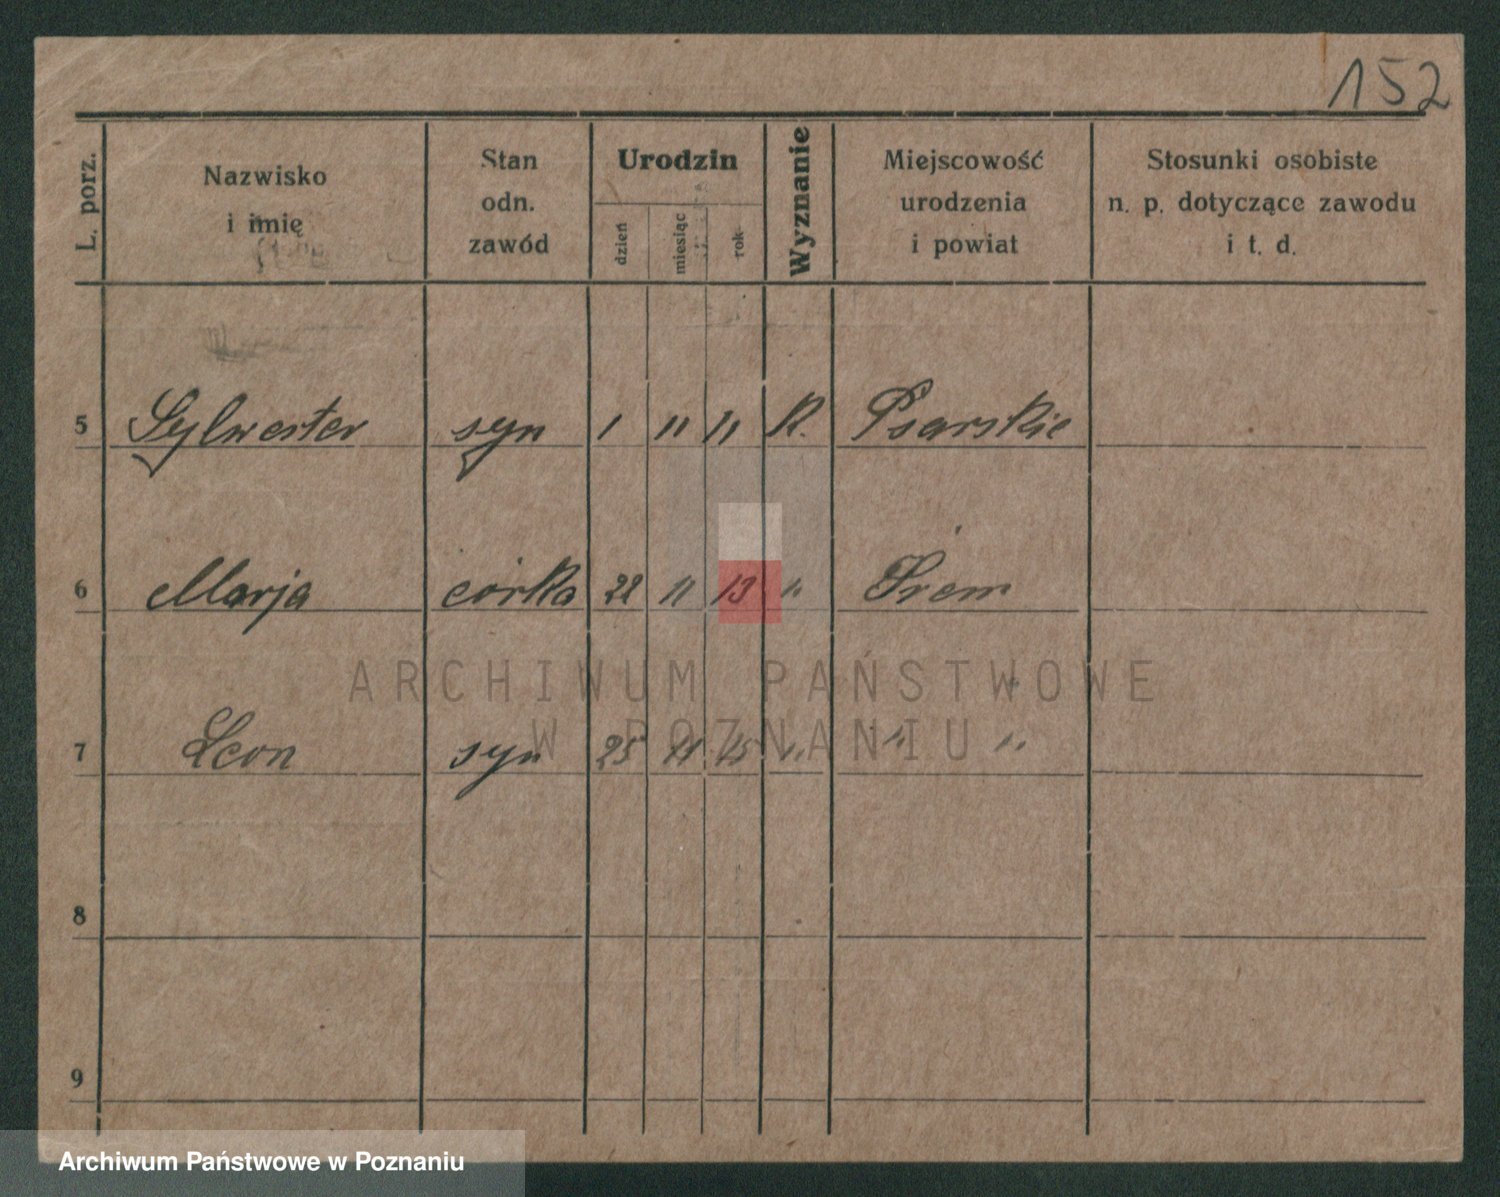 152
L. porz.
Nazwisko
i imię
Stan
odn.
zawód
Urodzin
dzień
miesiąc
rok
Wyznanie
Miejscowość
urodzenia
i powiat
Stosunki osobiste
n. p. dotyczące zawodu
i t. d.
5 Sylwester syn 1 11 11 K. Psarskie
6 Marja córka 22 11 13 " Śrem
7 Leon syn 25 11 15 " " "
8
9
ARCHIWUM PAŃSTWOWE
W POZNANIU
Archiwum Państwowe w Poznaniu